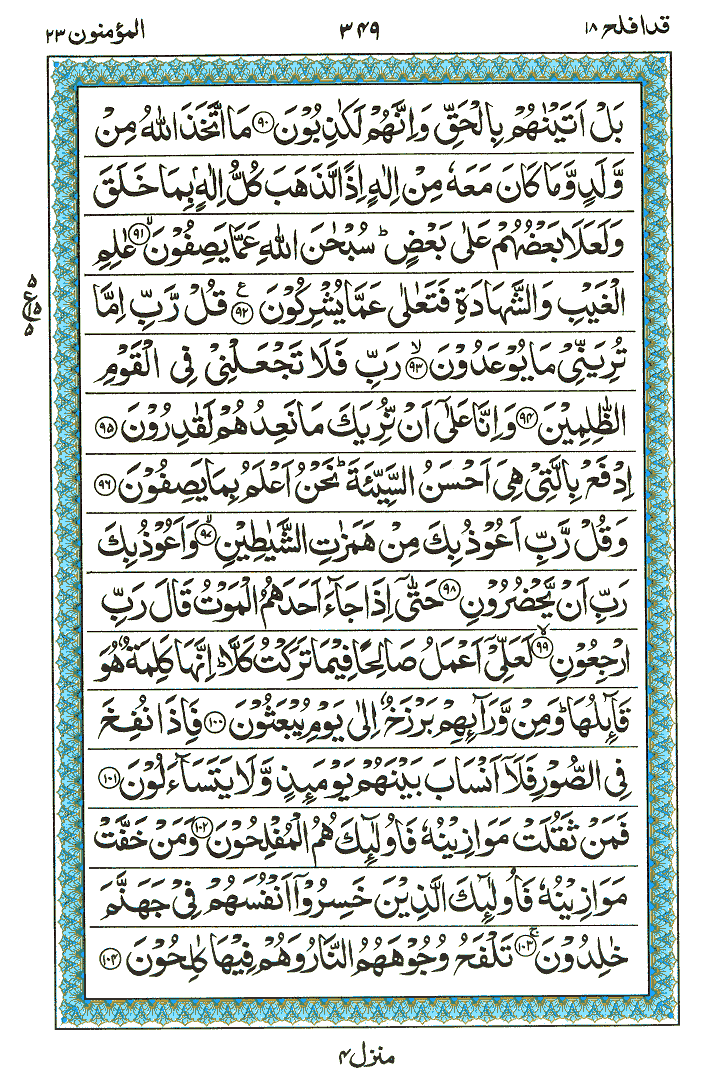 قد افلح ۱۸
۳۴۹
المؤمنون ۲۳
بَلْ اَتَيْنٰهُمْ بِالْحَقِّ وَاِنَّهُمْ لَكٰذِبُوْنَ ۹۰ مَا اتَّخَذَ اللّٰهُ مِنْ
وَّلَدٍ وَّمَا كَانَ مَعَهٗ مِنْ اِلٰهٍ اِذًا لَّذَهَبَ كُلُّ اِلٰهٍۢ بِمَا خَلَقَ
وَلَعَلَا بَعْضُهُمْ عَلٰى بَعْضٍ ؕ سُبْحٰنَ اللّٰهِ عَمَّا يَصِفُوْنَ ۙ۹۱ عٰلِمِ
الْغَيْبِ وَالشَّهَادَةِ فَتَعٰلٰى عَمَّا يُشْرِكُوْنَ ۹۲ ع قُلْ رَّبِّ اِمَّا
تُرِيَنِّىْ مَا يُوْعَدُوْنَ ۙ۹۳ رَبِّ فَلَا تَجْعَلْنِىْ فِى الْقَوْمِ
الظّٰلِمِيْنَ ۹۴ وَاِنَّا عَلٰٓى اَنْ نُّرِيَكَ مَا نَعِدُهُمْ لَقٰدِرُوْنَ ۹۵
اِدْفَعْ بِالَّتِىْ هِىَ اَحْسَنُ السَّيِّئَةَ ؕ نَحْنُ اَعْلَمُ بِمَا يَصِفُوْنَ ۹۶
وَقُلْ رَّبِّ اَعُوْذُ بِكَ مِنْ هَمَزٰتِ الشَّيٰطِيْنِ ۙ۹۷ وَاَعُوْذُ بِكَ
رَبِّ اَنْ يَّحْضُرُوْنِ ۹۸ حَتّٰٓى اِذَا جَآءَ اَحَدَهُمُ الْمَوْتُ قَالَ رَبِّ
ارْجِعُوْنِ ۙ۹۹ لَعَلِّىْٓ اَعْمَلُ صَالِحًا فِيْمَا تَرَكْتُ كَلَّا ؕ اِنَّهَا كَلِمَةٌ هُوَ
قَآئِلُهَا ؕ وَمِنْ وَّرَآئِهِمْ بَرْزَخٌ اِلٰى يَوْمِ يُبْعَثُوْنَ ۱۰۰ فَاِذَا نُفِخَ
فِى الصُّوْرِ فَلَاۤ اَنْسَابَ بَيْنَهُمْ يَوْمَئِذٍ وَّلَا يَتَسَآءَلُوْنَ ۱۰۱
فَمَنْ ثَقُلَتْ مَوَازِيْنُهٗ فَاُولٰٓئِكَ هُمُ الْمُفْلِحُوْنَ ۱۰۲ وَمَنْ خَفَّتْ
مَوَازِيْنُهٗ فَاُولٰٓئِكَ الَّذِيْنَ خَسِرُوْۤا اَنْفُسَهُمْ فِىْ جَهَنَّمَ
خٰلِدُوْنَ ۚ۱۰۳ تَلْفَحُ وُجُوْهَهُمُ النَّارُ وَهُمْ فِيْهَا كٰلِحُوْنَ ۱۰۴
منزل ۴